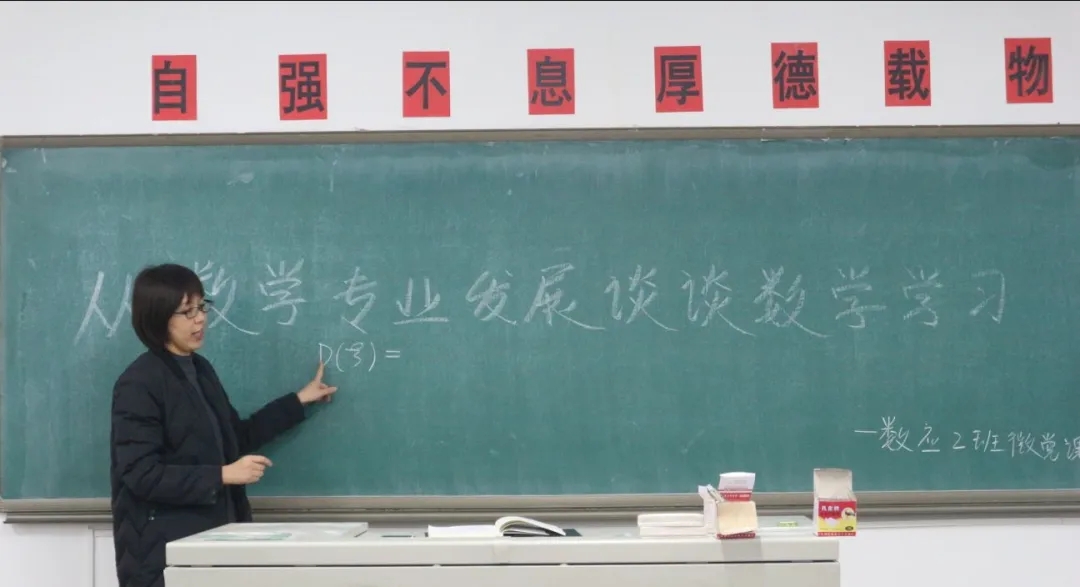 自强不息厚德载物
从数学专业发展谈谈数学学习
D(ξ)=
一数应2班微党课